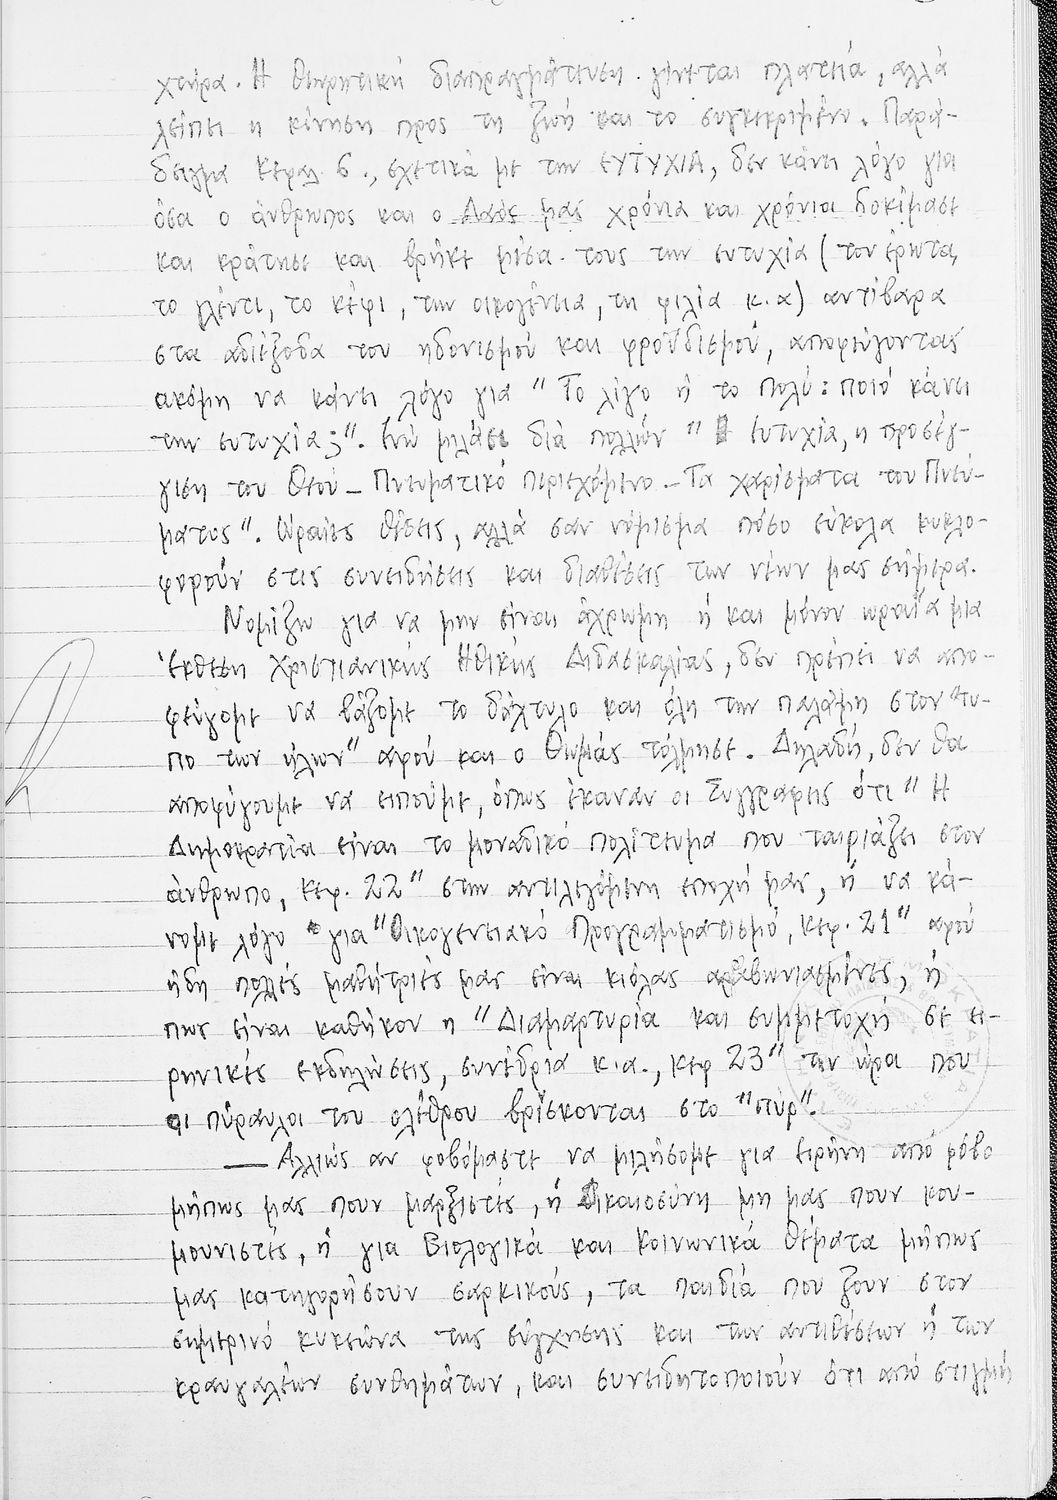 χείρα. Η θεωρητική διαπραγμάτευση γίνεται πλατειά, αλλά
λείπει η κίνηση προς τη ζωή και το συγκεκριμένο. Παρά-
δειγμα Κεφαλ. 6., σχετικά με την ΕΥΤΥΧΙΑ, δεν κάνει λόγο για
όσα ο άνθρωπος και ο Λαός μας χρόνια και χρόνια δοκίμασε
και κράτησε και βρήκε μέσα τους την ευτυχία (τον έρωτα,
το γλέντι, το κέφι, την οικογένεια, τη φιλία κ.α) αντίβαρα
στα αδιέξοδα του ηδονισμού και φροϋδισμού, αποφεύγοντας
ακόμη να κάνει λόγο για "Το λίγο ή το πολύ: ποιό κάνει
την ευτυχία;". Ενώ μιλάει διά πολλών " Ευτυχία, η προσέγ-
γιση του Θεού – Πνευματικό περιεχόμενο – Τα χαρίσματα του Πνεύ-
ματος". Ωραίες θέσεις, αλλά σαν νόμισμα πόσο εύκολα κυκλο-
φορούν στις συνειδήσεις και διαθέσεις των νέων μας σήμερα.
Νομίζω για να μην είναι άχρωμη ή και μόνον ωραία μια
Έκθεση Χριστιανικής Ηθικής Διδασκαλίας, δεν πρέπει να απο-
φεύγομε να βάζομε το δάχτυλο και όλη την παλάμη στον "τύ-
πο των ήλων" αφού και ο Θωμάς τόλμησε. Δηλαδή, δεν θα
αποφύγουμε να ειπούμε, όπως έκαναν οι Συγγραφείς ότι "Η
Δημοκρατία είναι το μοναδικό πολίτευμα που ταιριάζει στον
άνθρωπο, Κεφ. 22" στην αντιλεγόμενη εποχή μας, ή να κά-
νομε λόγο για "Οικογενειακό Προγραμματισμό, Κεφ. 21" αφού
ήδη πολλές μαθήτριές μας είναι κιόλας αρραβωνιασμένες, ή
πως είναι καθήκον η "Διαμαρτυρία και συμμετοχή σε ει-
ρηνικές εκδηλώσεις, συνέδρια κ.α., Κεφ 23" την ώρα που
οι πύραυλοι του ολέθρου βρίσκονται στο "πύρ".
— Αλλιώς αν φοβόμαστε να μιλήσομε για ειρήνη από φόβο
μήπως μας πουν μαρξιστές, ή Δικαιοσύνη μη μας πουν κου-
μουνιστές, ή για Βιολογικά και Κοινωνικά θέματα μήπως
μας κατηγορήσουν σαρκικούς, τα παιδιά που ζουν στον
σημερινό κυκεώνα της σύγχησης και των αντιθέσεων ή των
κραυγαλέων συνθημάτων, και συνειδητοποιούν ότι από στιγμή